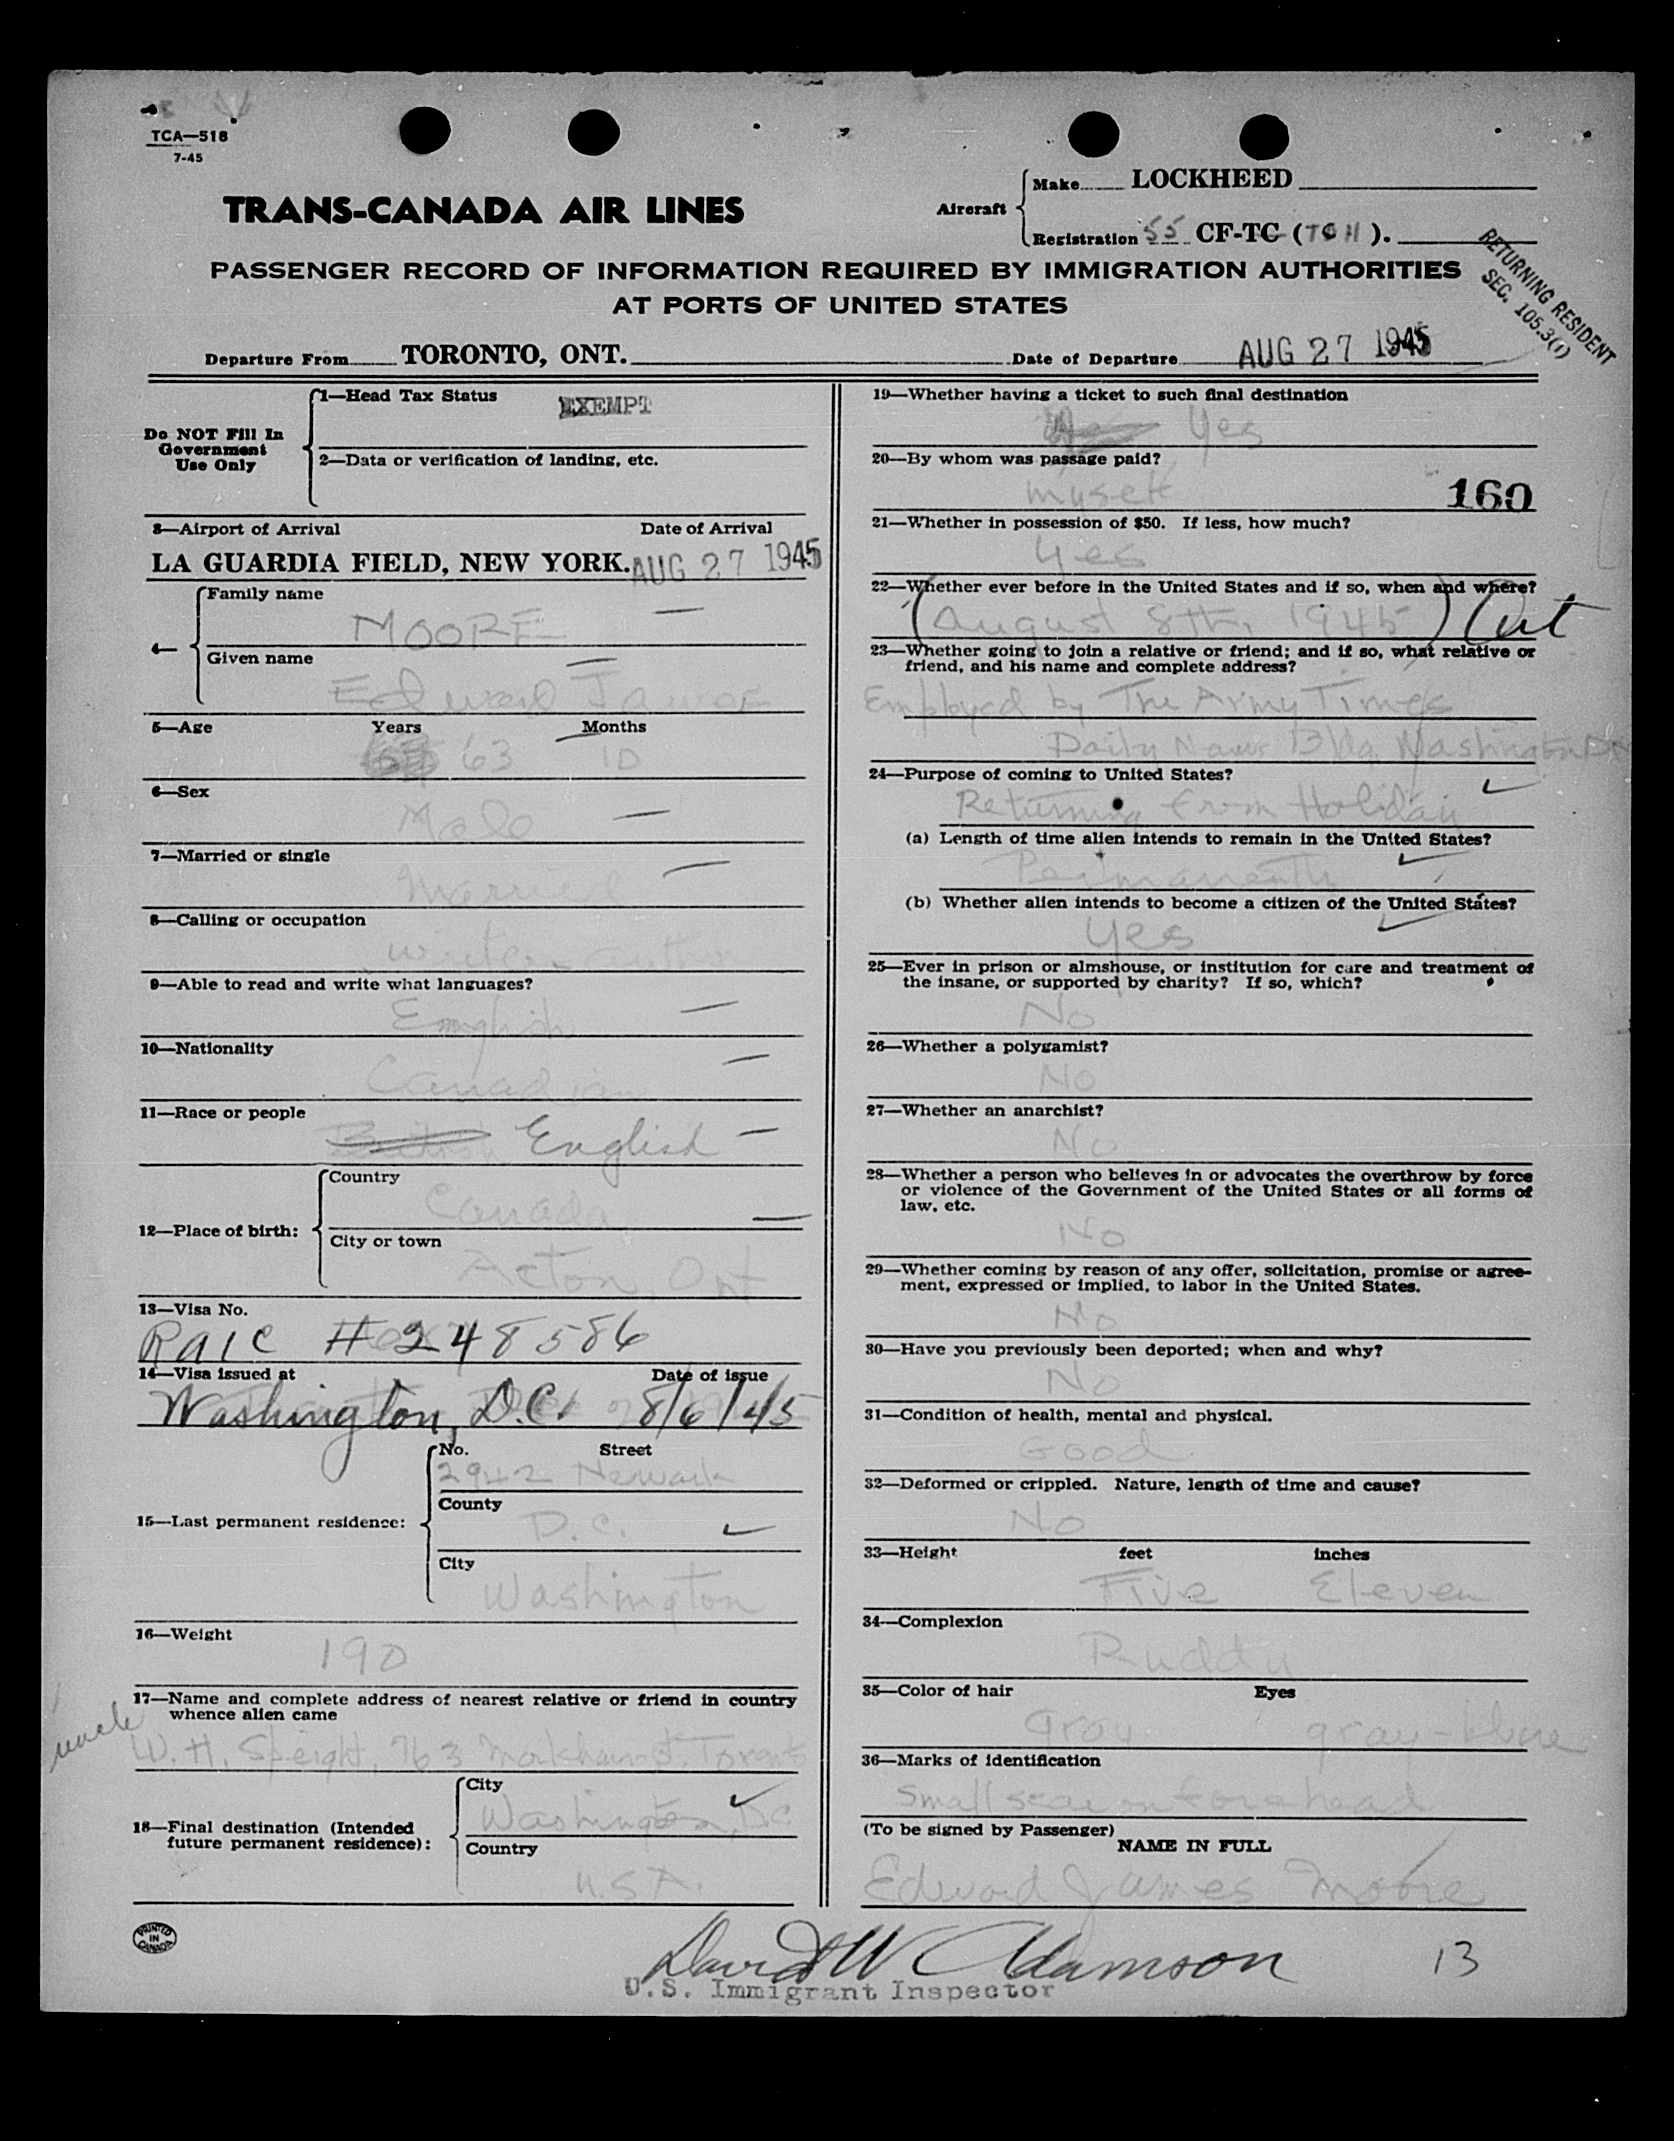 TCA—518
7-45
TRANS-CANADA AIR LINES
Aircraft
Make LOCKHEED
Registration 55 CF-TC (TCH).
PASSENGER RECORD OF INFORMATION REQUIRED BY IMMIGRATION AUTHORITIES
AT PORTS OF UNITED STATES
RETURNING RESIDENT
SEC. 105.3(1)
Departure From TORONTO, ONT. Date of Departure AUG 27 1945
Do NOT Fill In
Government
Use Only
1—Head Tax Status EXEMPT
2—Data or verification of landing, etc.
3—Airport of Arrival Date of Arrival
LA GUARDIA FIELD, NEW YORK. AUG 27 1945
4—
Family name
MOORE
Given name
Edward James
5—Age Years Months
63 10
6—Sex
Male
7—Married or single
Married
8—Calling or occupation
Writer author
9—Able to read and write what languages?
English
10—Nationality
Canadian
11—Race or people
British English
12—Place of birth:
Country
Canada
City or town
Acton, Ont
13—Visa No.
RAIC # 248586
14—Visa issued at Date of issue
Washington, D.C. 8/6/45
15—Last permanent residence:
No. Street
2942 Newark
County
D.C.
City
Washington
16—Weight
190
17—Name and complete address of nearest relative or friend in country
whence alien came
uncle
W. H. Speight, 763 Markham St. Toronto
18—Final destination (Intended
future permanent residence):
City
Washington, DC
Country
U.S.A.
19—Whether having a ticket to such final destination
Yes
20—By whom was passage paid?
myself
160
21—Whether in possession of $50. If less, how much?
Yes
22—Whether ever before in the United States and if so, when and where?
(August 8th, 1945) Out
23—Whether going to join a relative or friend; and if so, what relative or
friend, and his name and complete address?
Employed by The Army Times
Daily News Bldg. Washington DC
24—Purpose of coming to United States?
Returning from Holiday
(a) Length of time alien intends to remain in the United States?
Permanently
(b) Whether alien intends to become a citizen of the United States?
Yes
25—Ever in prison or almshouse, or institution for care and treatment of
the insane, or supported by charity? If so, which?
No
26—Whether a polygamist?
No
27—Whether an anarchist?
No
28—Whether a person who believes in or advocates the overthrow by force
or violence of the Government of the United States or all forms of
law, etc.
No
29—Whether coming by reason of any offer, solicitation, promise or agree-
ment, expressed or implied, to labor in the United States.
No
30—Have you previously been deported; when and why?
No
31—Condition of health, mental and physical.
Good
32—Deformed or crippled. Nature, length of time and cause?
No
33—Height feet inches
Five Eleven
34—Complexion
Ruddy
35—Color of hair Eyes
Gray gray-blue
36—Marks of identification
Small scar on forehead
(To be signed by Passenger)
NAME IN FULL
Edward James Moore
PRINTED
IN
CANADA
David W Adamson
13
U.S. Immigrant Inspector